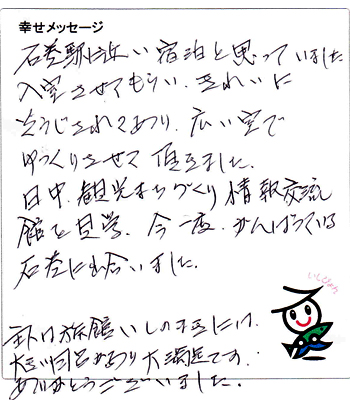 幸せメッセージ
石巻駅に近い宿泊と思っていました
入室させてもらい、きれいに
そうじされてあり、広い室で
ゆっくりさせて頂きました。
日中、観光まちづくり情報交流
館を見学、今一度、がんばっている
石巻に出合いました。
いしぴょん
旅館いしのまきには、
大満足です。
ありがとうございました。